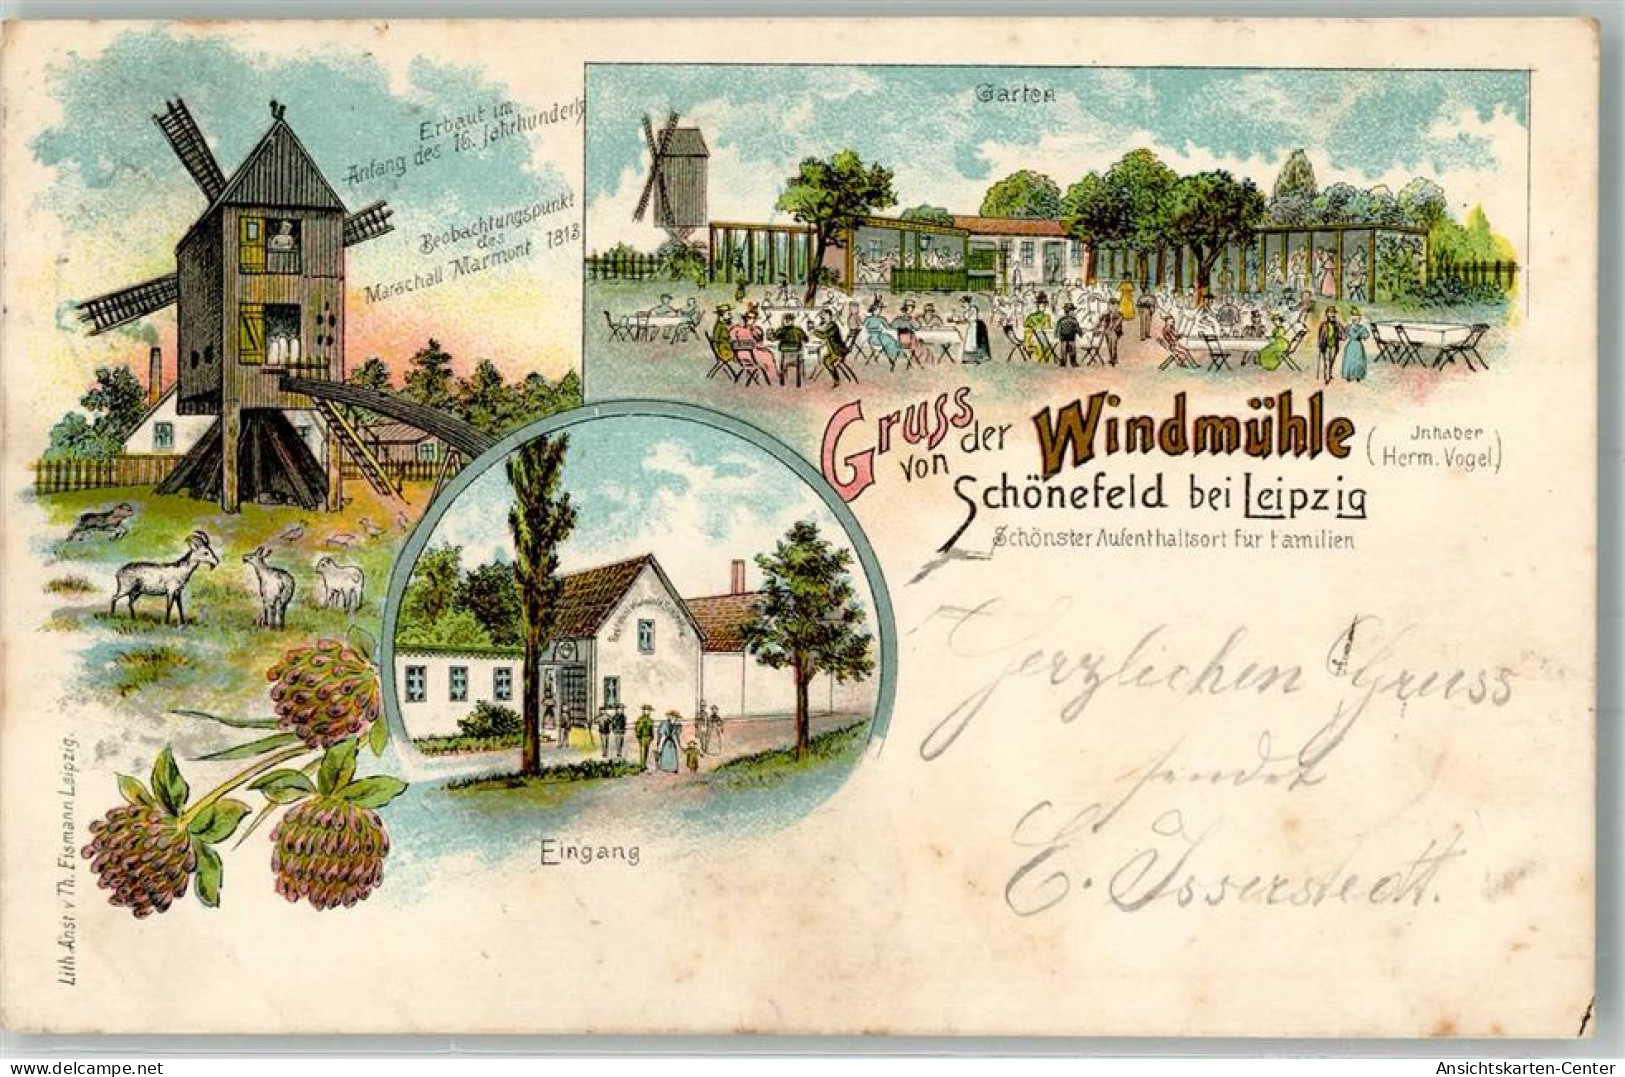 Erbaut im
Anfang des 16. Jahrhunderts
Beobachtungspunkt
des
Marschall Marmont 1813
Garten
Gruss
von der Windmühle
(Inhaber
Herm. Vogel)
Schönefeld bei Leipzig
Schönster Aufenthaltsort für Familien
Herzlichen Gruss
sendet
E. Isserstedt.
Eingang
Lith. Anst v Th. Eismann Leipzig.
delcampe.net
Ansichtskarten-Center